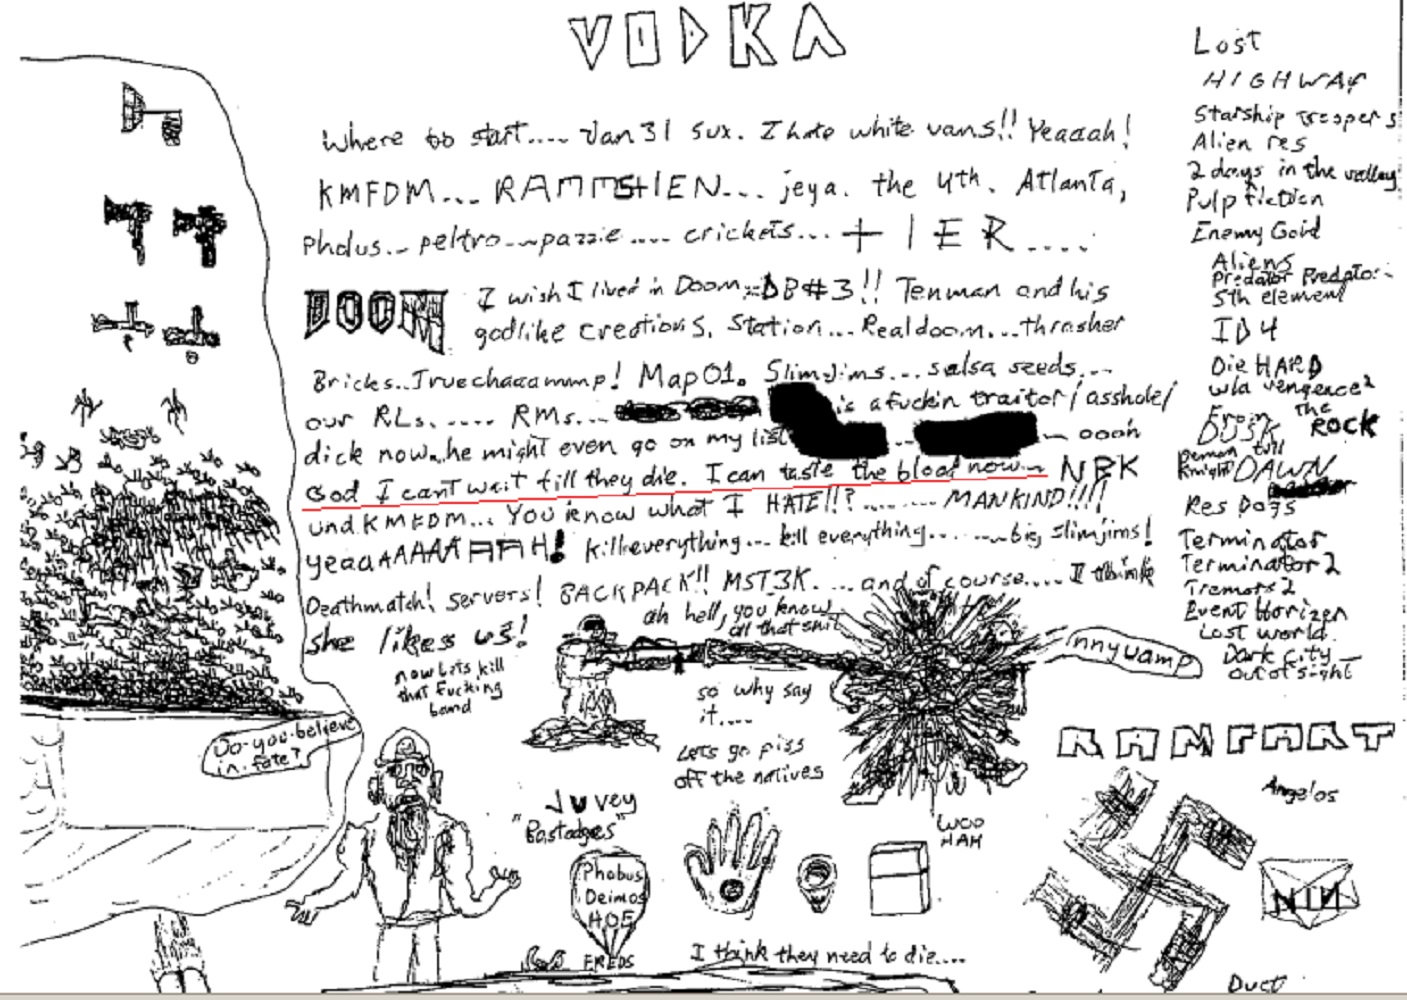 VODKA
Where to start.... Jan 31 sux. I hate white vans!! Yeaaah!
KMFDM... RAMMSTIEN... jeya. the 4th. Atlanta,
Pholus... peltro...pazzie.... crickets... + I E R ....
DOOM
I wish I lived in Doom DB#3!! Tenman and his
godlike creations. Station... Realdoom...thrasher
Bricks..Truechaaammp! Map01. Slimjims... salsa seeds...
our RLs...... RMs... is a fuckin traitor/asshole/
dick now...he might even go on my list ... oooh
God I cant wait till they die. I can taste the blood now... NBK
und KMFDM... You know what I HATE!!?........ MANKIND!!!!
yeaaAAAAAAAAH! kill everything... kill everything........ big slimjims!
Deathmatch! servers! BACKPACK!! MST3K....and of course.... I think
she likes us!
ah hell, you know
all that shit
now lets kill
that fucking
band
so why say
it....
Lets go piss
off the natives
Do you believe
in fate?
Juvey
"Bastadges"
Phobus
Deimos
HOE
FREDS
WOO
HAH
I think they need to die....
Lost
HIGHWAY
Starship troopers
Alien res
2 days in the valley
Pulp fiction
Enemy Gold
Aliens
Predator
5th element
ID4
Die HARD
w/a vengence
The
ROCK
From
Dusk till
DAWN
Demon
Knight
Res Dogs
Terminator
Terminator 2
Tremors 2
Event Horizen
Lost world
Dark City
out of sight
RAMFART
Angelos
NIN
Duct